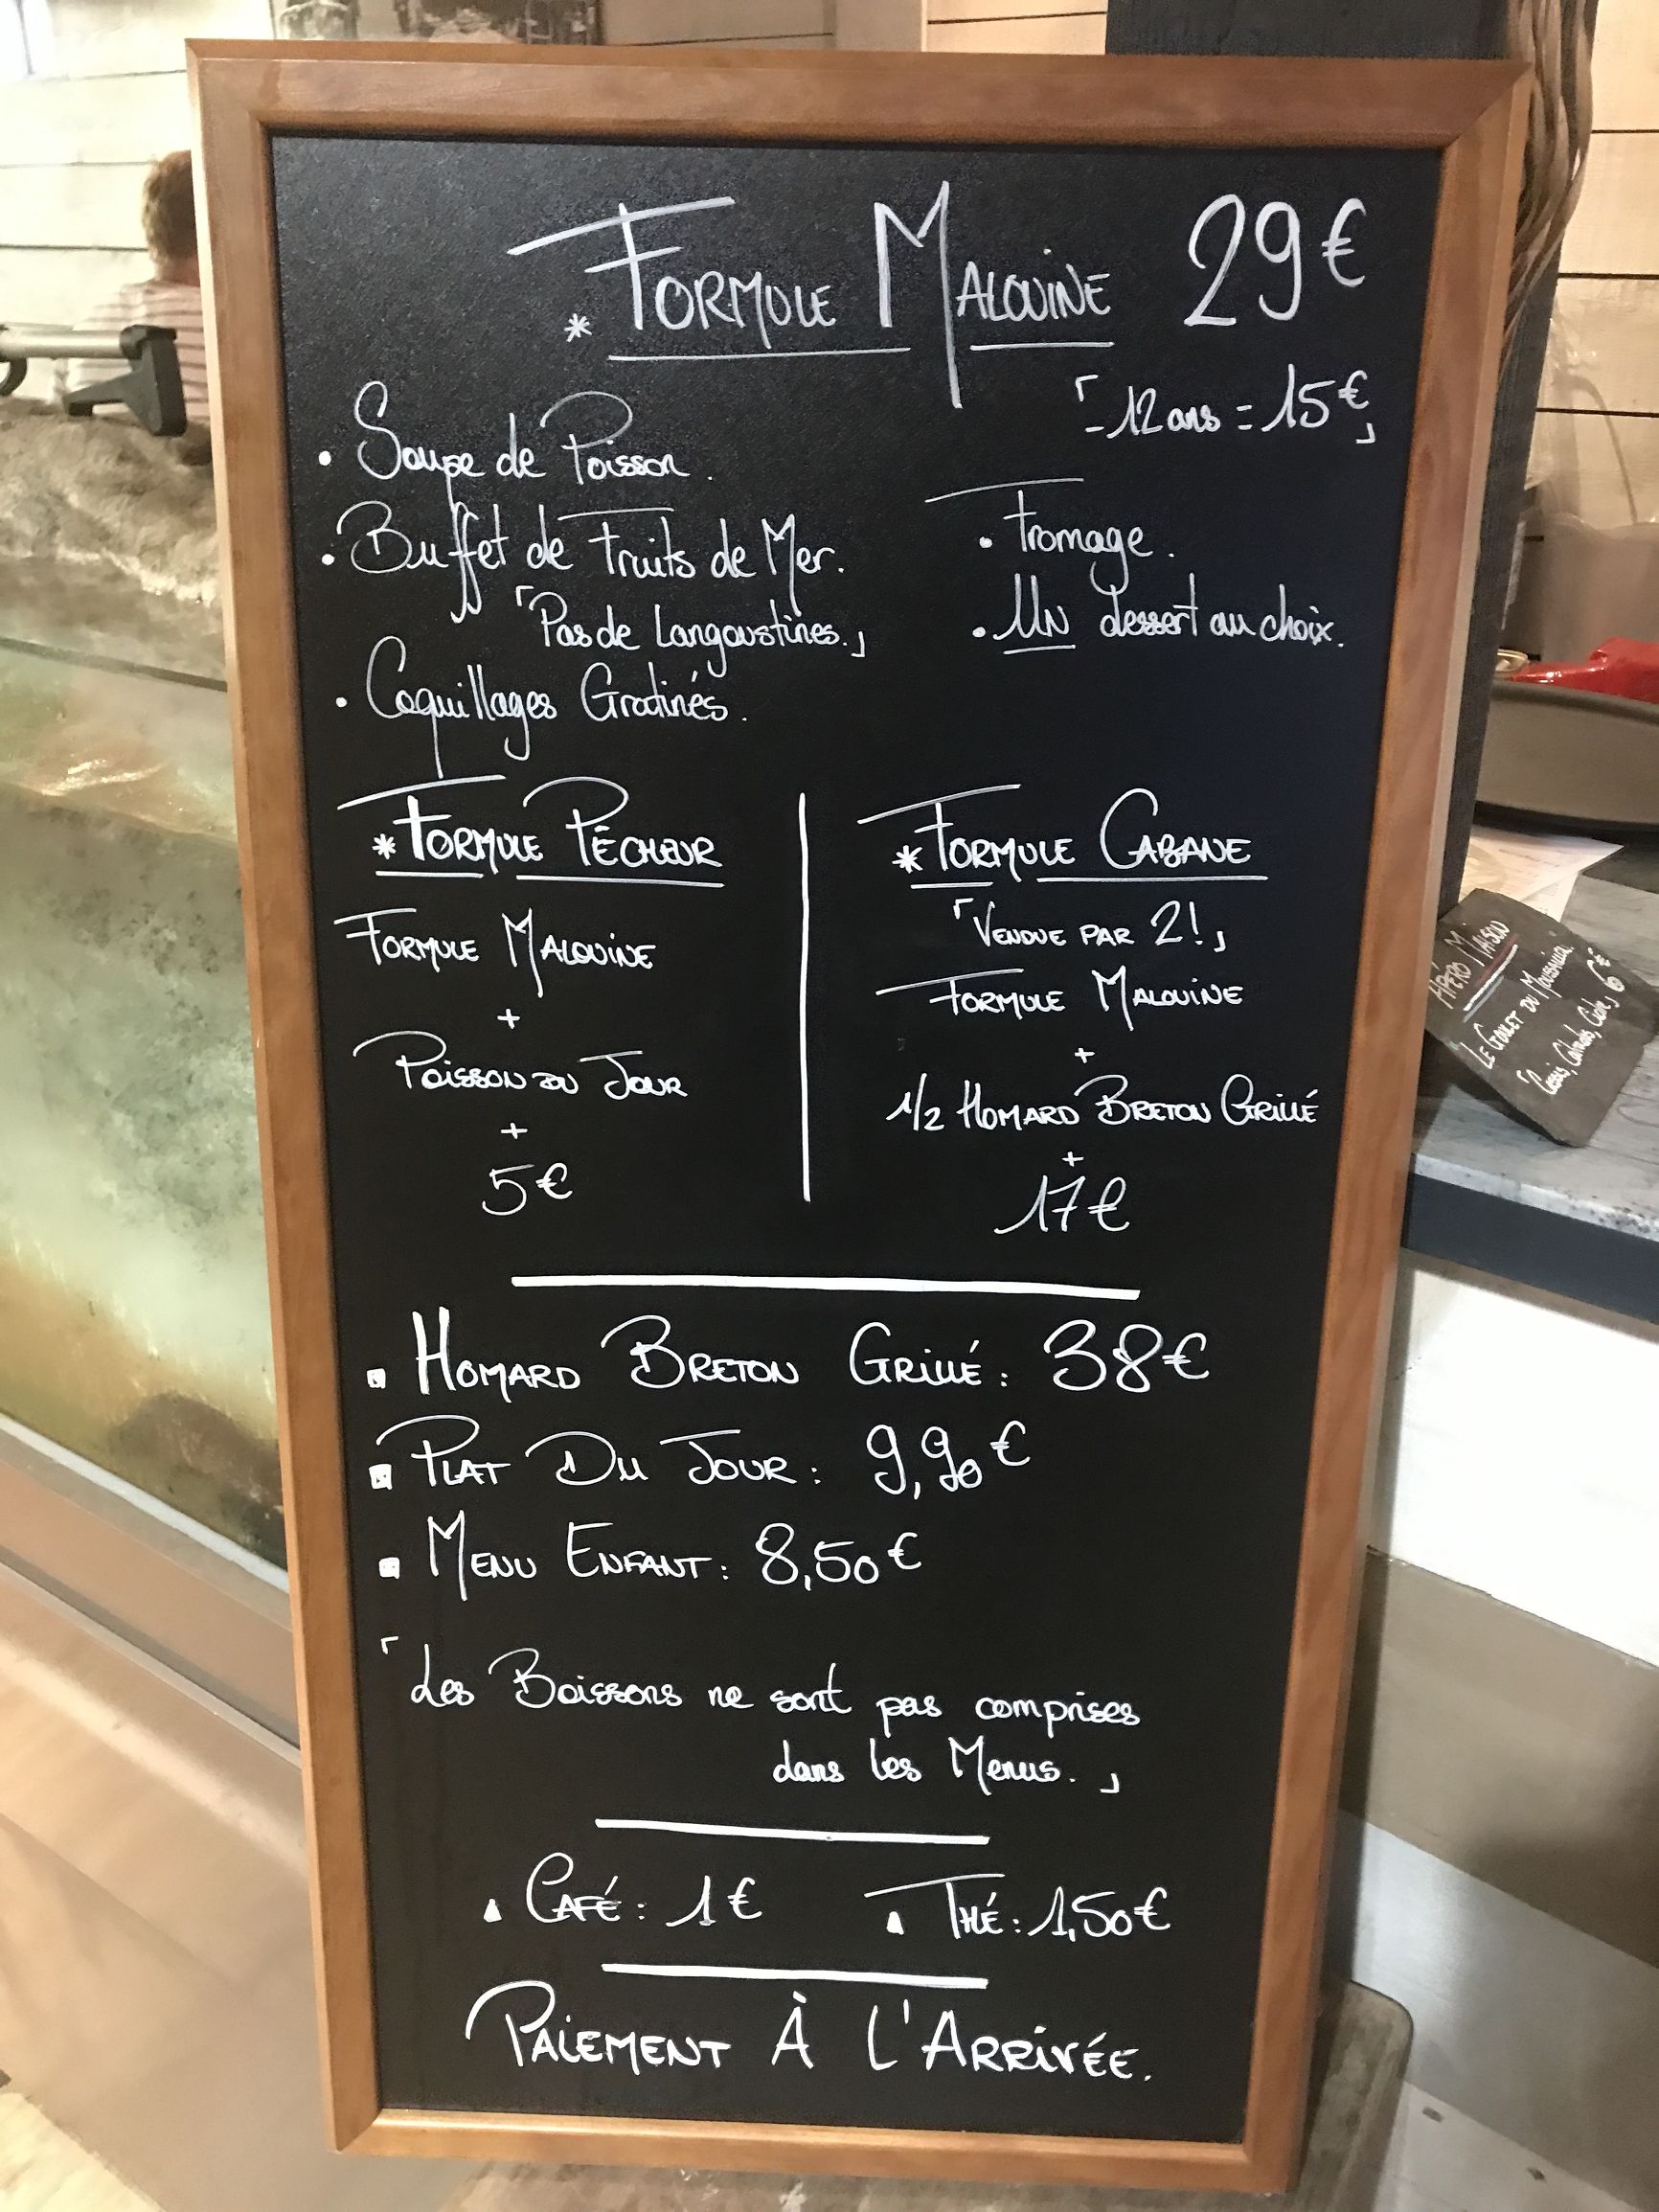 * Formule Malouine 29€
「-12 ans = 15€」
• Soupe de Poisson.
• Buffet de Fruits de Mer.
「Pas de Langoustines.」
• Coquillages Gratinés.
• Fromage.
• UN dessert au choix.
* FORMULE PÊCHEUR
FORMULE MALOUINE
+
POISSON DU JOUR
+
5€
* FORMULE CABANE
「VENDUE PAR 2!」
FORMULE MALOUINE
+
1/2 HOMARD BRETON GRILLÉ
+
17€
▪ HOMARD BRETON GRILLÉ: 38€
▪ PLAT DU JOUR: 9,90€
▪ MENU ENFANT: 8,50€
「Les Boissons ne sont pas comprises
dans les Menus.」
▲ CAFÉ: 1€ ▲ THÉ: 1,50€
PAIEMENT À L'ARRIVÉE.
APÉRO MAISON
LE GOULET DU MOUSSAILLON
Cassis, Calvados, Cidre, 6€